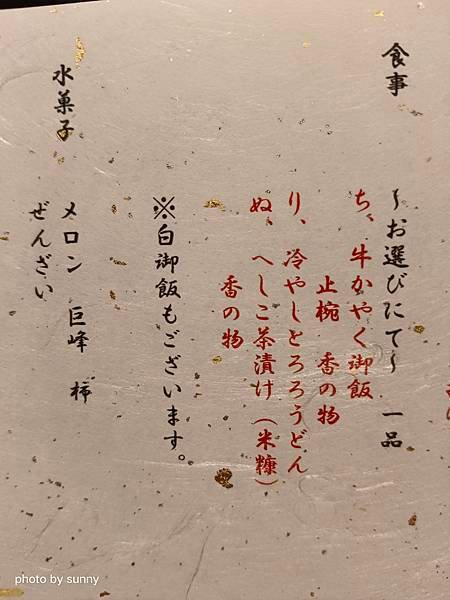 食事
〜お選びにて〜 一品
ち、牛かやく御飯
止椀 香の物
り、冷やしとろろうどん
ぬ、へしこ茶漬け（米糠）
香の物
※白御飯もございます。
水菓子
メロン 巨峰 柿
ぜんざい
photo by sunny